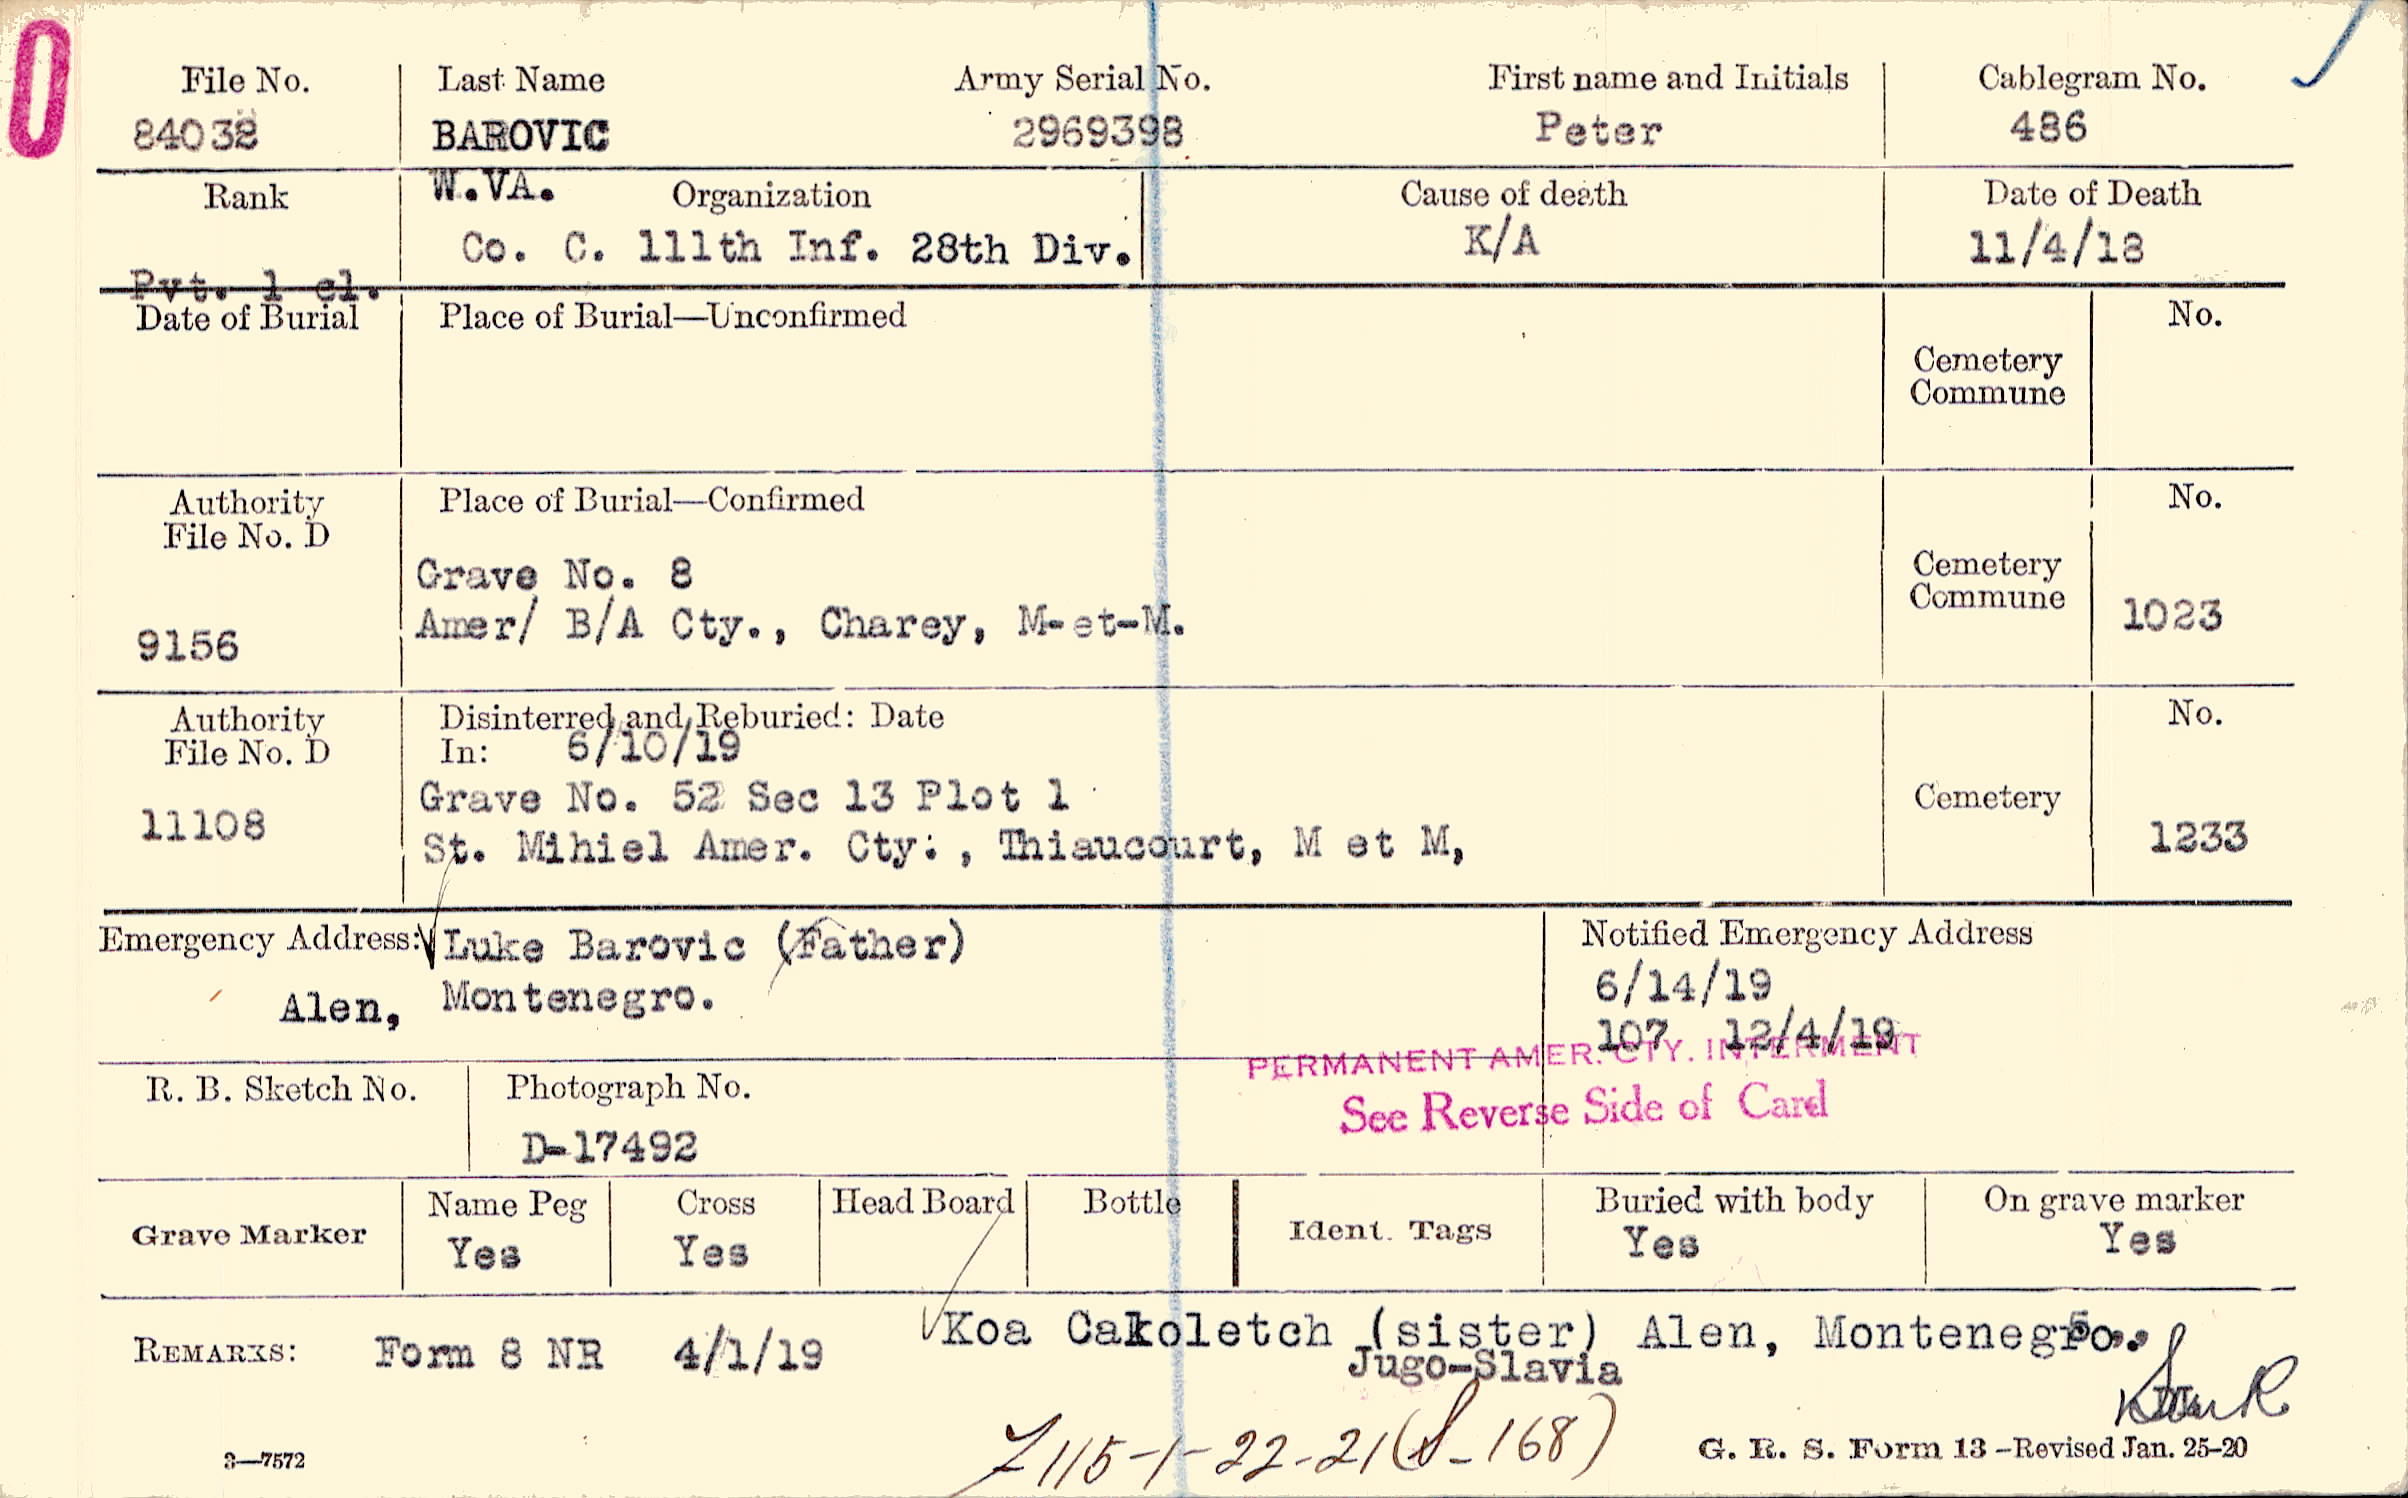 0
File No. Last Name Army Serial No. First name and Initials Cablegram No.
84038 BAROVIC 2969398 Peter 486
Rank W.VA. Organization Cause of death Date of Death
Co. C. 111th Inf. 28th Div. K/A 11/4/18
Pvt. 1 cl.
Date of Burial Place of Burial—Unconfirmed No.
Cemetery
Commune
Authority Place of Burial—Confirmed No.
File No. D
Grave No. 8 Cemetery
9156 Amer/ B/A Cty., Charey, M-et-M. Commune 1023
Authority Disinterred and Reburied: Date No.
File No. D In: 6/10/19
Grave No. 52 Sec 13 Plot 1 Cemetery
11108 St. Mihiel Amer. Cty:, Thiaucourt, M et M, 1233
Emergency Address: Luke Barovic (Father) Notified Emergency Address
Alen, Montenegro. 6/14/19
107 12/4/19
PERMANENT AMER. CTY. INTERMENT
See Reverse Side of Card
R. B. Sketch No. Photograph No.
D-17492
Grave Marker Name Peg Cross Head Board Bottle Ident. Tags Buried with body On grave marker
Yes Yes Yes Yes
REMARKS: Form 8 NR 4/1/19 Koa Cakoletch (sister) Alen, Montenegro.
Jugo-Slavia
Z115-1-22-21(S-168)
3—7572 G. R. S. Form 13 –Revised Jan. 25-20